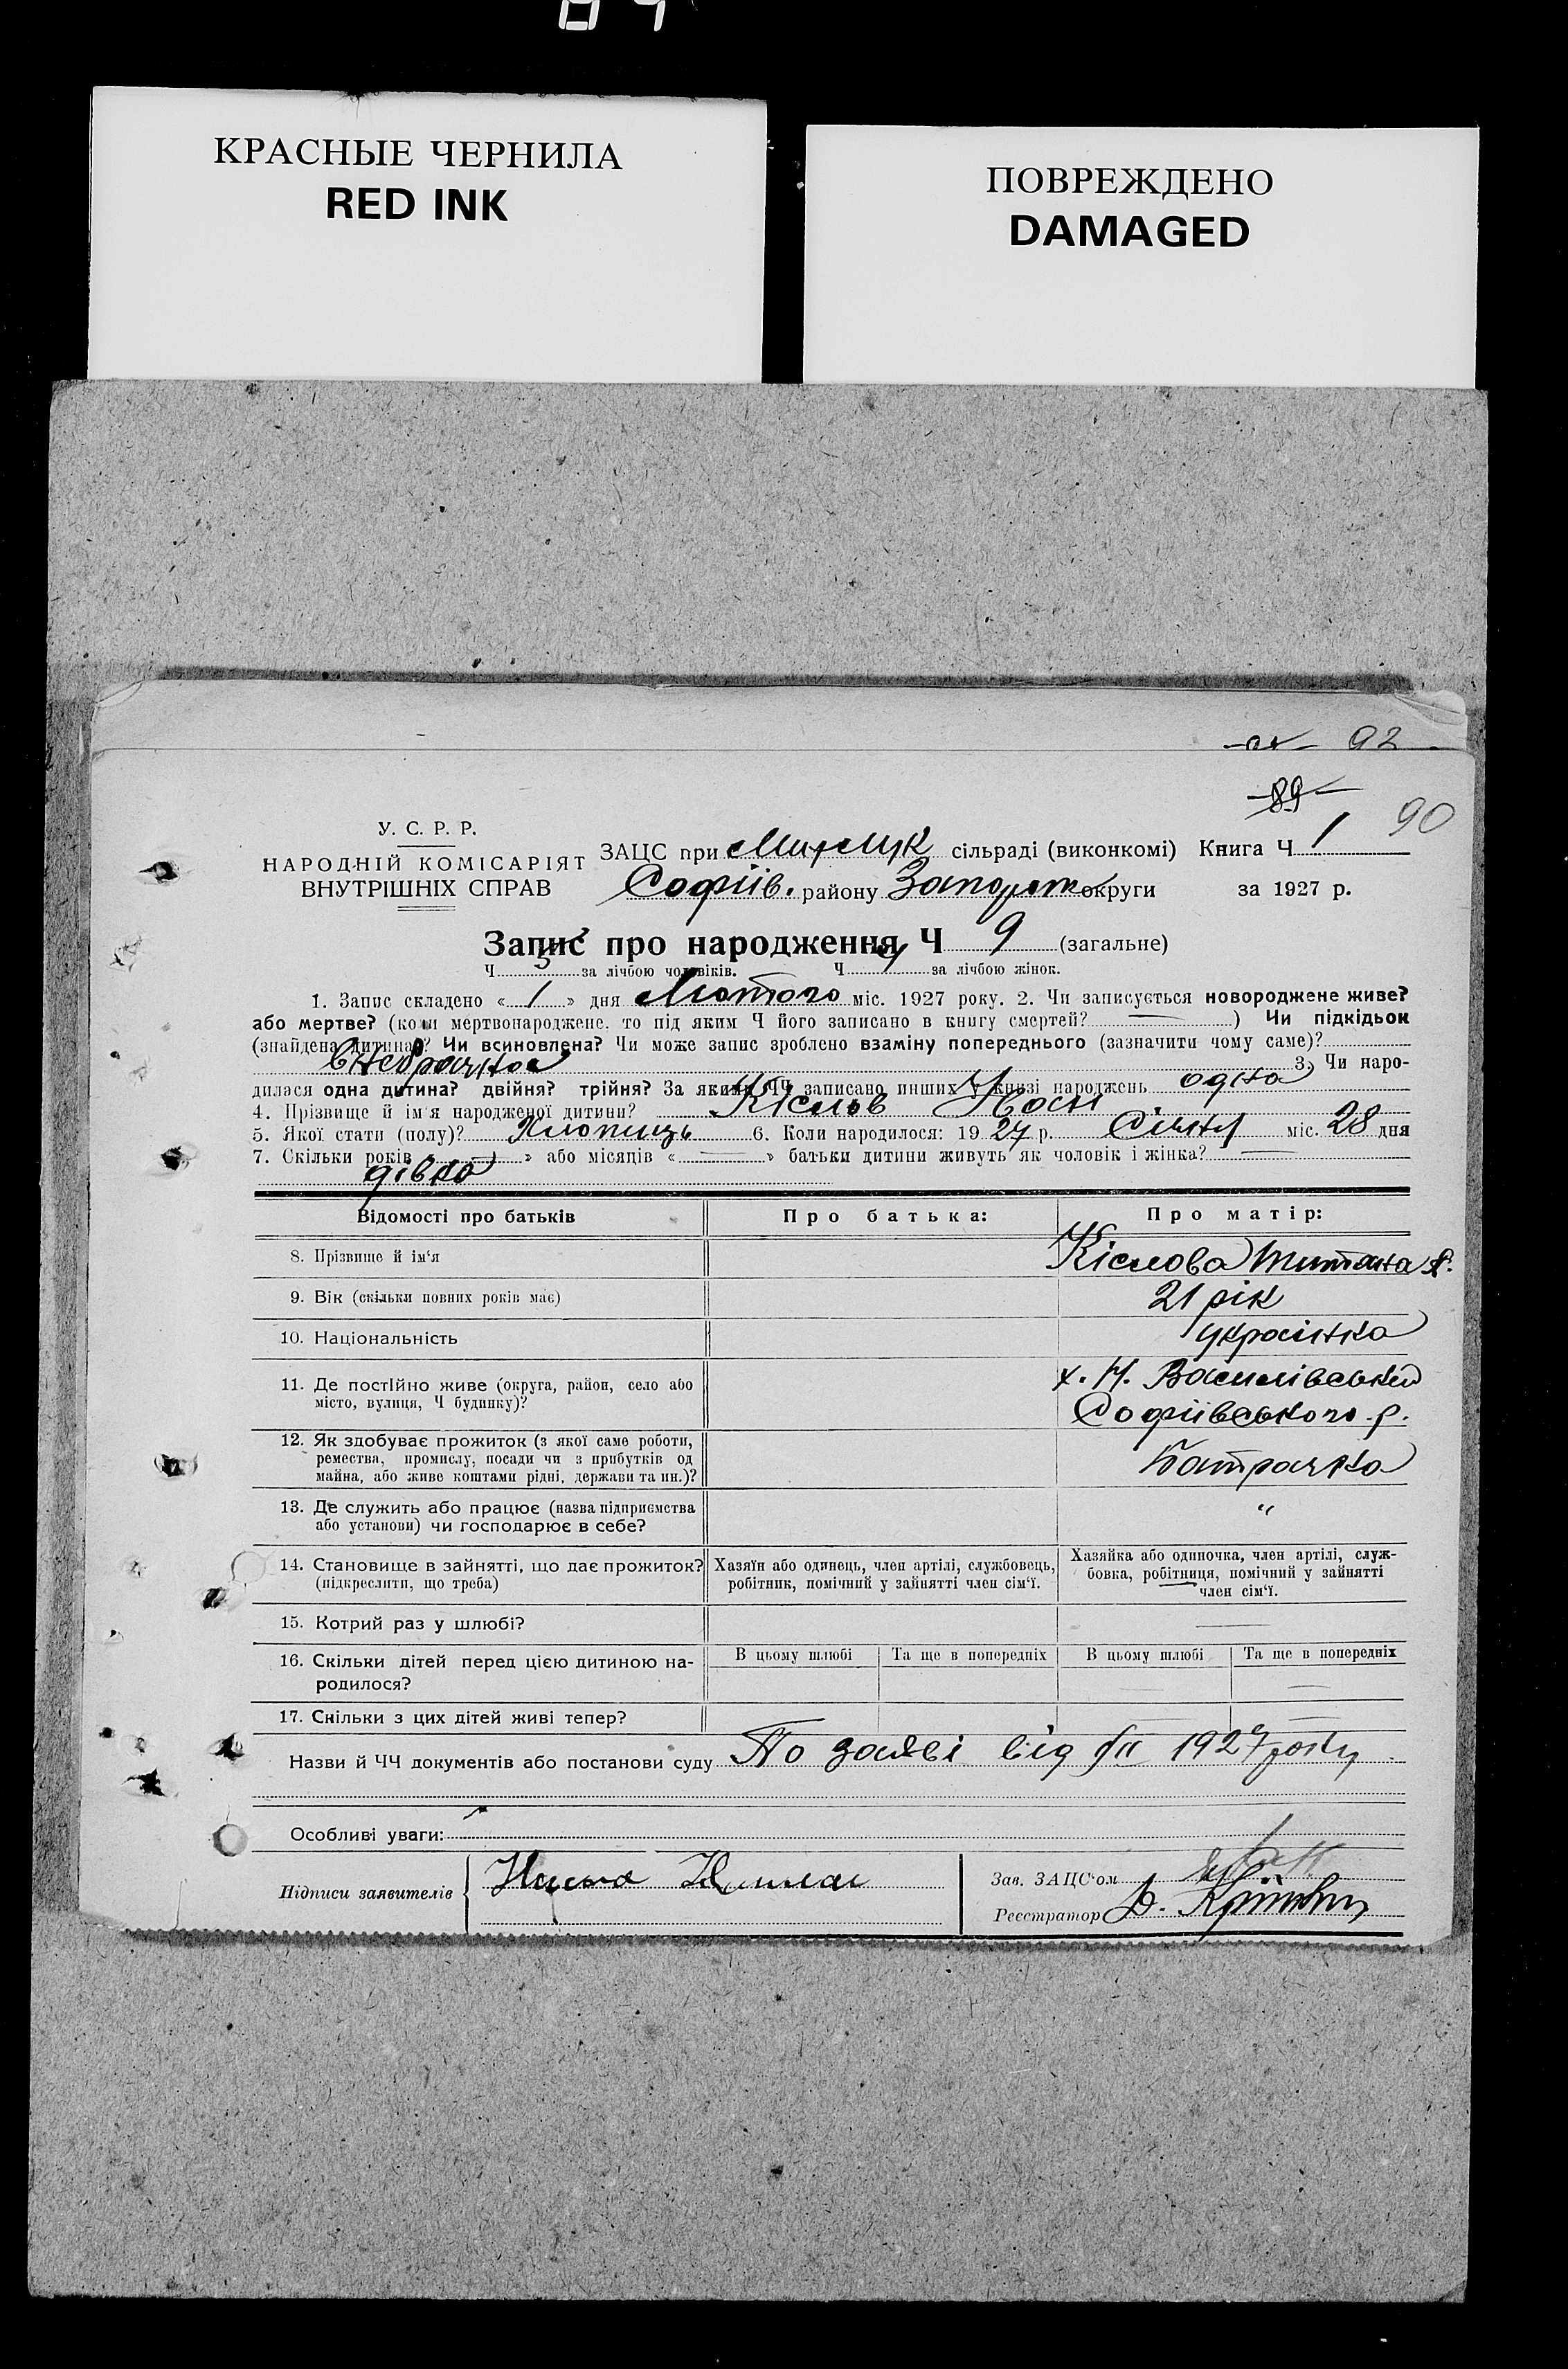 КРАСНЫЕ ЧЕРНИЛА
RED INK
ПОВРЕЖДЕНО
DAMAGED
92
89
90
У. С. Р. Р.
НАРОДНІЙ КОМІСАРІЯТ
ВНУТРІШНІХ СПРАВ
ЗАЦС при сільраді (виконкомі) Книга Ч 1
Софіїв. району Запорож округи за 1927 р.
Запис про народження Ч 9 (загальне)
Ч 5 за лічбою чоловіків. Ч 4 за лічбою жінок.
1. Запис складено « 1 » дня Лютого міс. 1927 року. 2. Чи записується новороджене живе?
або мертве? (коли мертвонароджене. то під яким Ч його записано в книгу смертей? — ) Чи підкідьок
(знайдена дитина)? Чи всиновлена? Чи може запис зроблено взаміну попереднього (зазначити чому саме)?
внебрачное 3. Чи наро-
дилася одна дитина? двійня? трійня? За якими ЧЧ записано инших у книзі народжень одна
4. Прізвище й ім'я народженої дитини? Кіслов Іван
5. Якої стати (полу)? Хлопець 6. Коли народилося: 1927 р. Січня міс. 28 дня
7. Скільки років « — » або місяців « — » батьки дитини живуть як чоловік і жінка? —
дівка
Відомості про батьків Про батька: Про матір:
8. Прізвище й ім'я Кіслова Титана
9. Вік (скільки повних років має) 21 рік
10. Національність українка
11. Де постійно живе (округа, район, село або х. Н. Василівський
місто, вулиця, Ч будинку)? Софіївського р.
12. Як здобуває прожиток (з якої саме роботи,
ремества, промислу, посади чи з прибутків од Батрачка
майна, або живе коштами рідні, держави та ин.)?
13. Де служить або працює (назва підприємства "
або установи) чи господарює в себе?
14. Становище в зайнятті, що дає прожиток? Хазяїн або одинець, член артілі, службовець, Хазяйка або одиночка, член артілі, служ-
(підкреслити, що треба) робітник, помічний у зайнятті член сім'ї. бовка, робітниця, помічний у зайнятті
член сім'ї.
15. Котрий раз у шлюбі? —
16. Скільки дітей перед цією дитиною на- В цьому шлюбі Та ще в попередніх В цьому шлюбі Та ще в попередніх
родилося? — —
17. Скільки з цих дітей живі тепер? — —
Назви й ЧЧ документів або постанови суду По заяві від 1/II 1927 року
Особливі уваги:
Підписи заявителів
Зав. ЗАЦС'ом
Реєстратор